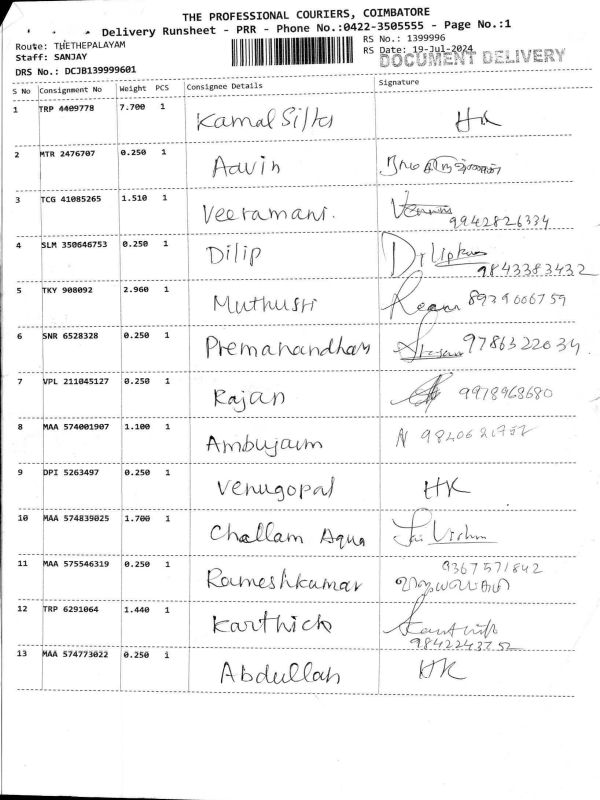 THE PROFESSIONAL COURIERS, COIMBATORE
Delivery Runsheet - PRR - Phone No.:0422-3505555 - Page No.:1
Route: THETHEPALAYAM
RS No.: 1399996
Staff: SANJAY
RS Date: 19-Jul-2024
DOCUMENT DELIVERY
DRS No.: DCJB139999601
S No Consignment No Weight PCS Consignee Details Signature
1 TRP 4409778 7.700 1 HK
2 MTR 2476707 0.250 1 Aavin
3 TCG 41085265 1.510 1 Veeramani.
9942826334
4 SLM 350646753 0.250 1 Dilip
9843383432
5 TKY 908092 2.960 1 Muthusri 8939006759
6 SNR 6528328 0.250 1 Premanandham 9786322034
7 VPL 211045127 0.250 1 Rajan 9978968680
8 MAA 574001907 1.100 1 Ambujam
9 DPI 5263497 0.250 1 Venugopal HK
10 MAA 574839025 1.700 1 Chellam Aqua
11 MAA 575546319 0.250 1 Rameshkumar 9367571842
12 TRP 6291064 1.440 1 Karthick
13 MAA 574773022 0.250 1 Abdullah HK